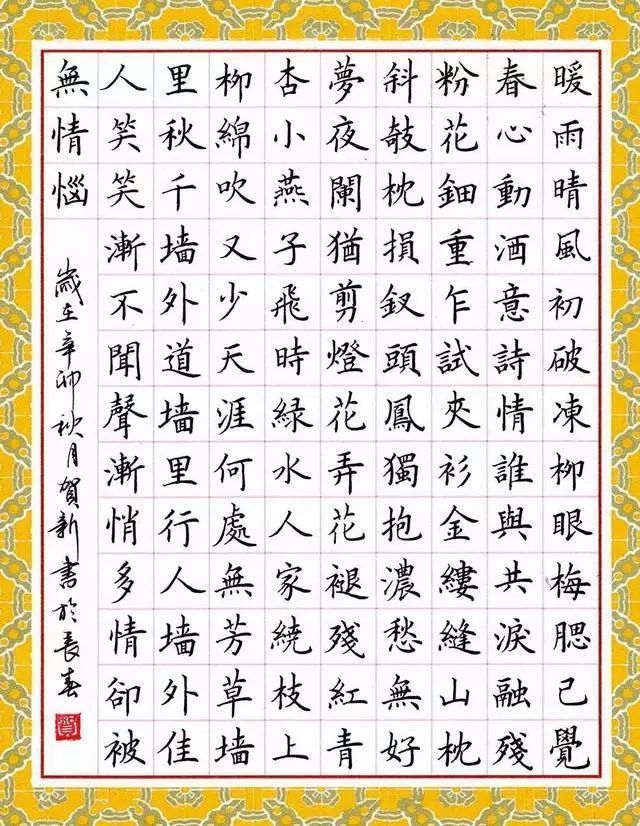 暖雨晴風初破凍柳眼梅腮已覺
春心動酒意詩情誰與共淚融殘
粉花鈿重乍試夾衫金縷縫山枕
斜敧枕損釵頭鳳獨抱濃愁無好
夢夜闌猶剪燈花弄花褪殘紅青
杏小燕子飛時緑水人家繞枝上
柳綿吹又少天涯何處無芳草墙
里秋千墙外道墙里行人墙外佳
人笑笑漸不聞聲漸悄多情卻被
無情惱
歲在辛卯秋月賀新書於長春
賀